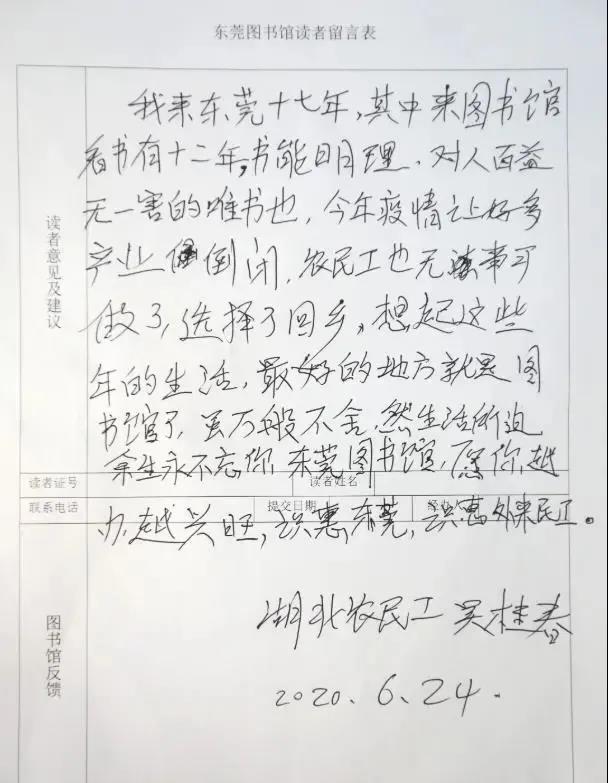 东莞图书馆读者留言表
读者意见及建议
我来东莞十七年,其中来图书馆
看书有十二年,书能明理、对人百益
无一害的唯书也,今年疫情让好多
产业倒闭,农民工也无事可
做了,选择了回乡。想起这些
年的生活,最好的地方就是图
书馆了,虽万般不舍,然生活所迫
余生永不忘你,东莞图书馆,愿你越
读者证号 读者姓名
联系电话 提交日期 经办人
办越兴旺,识惠东莞,识惠外来民工。
图书馆反馈
湖北农民工 吴桂春
2020.6.24.